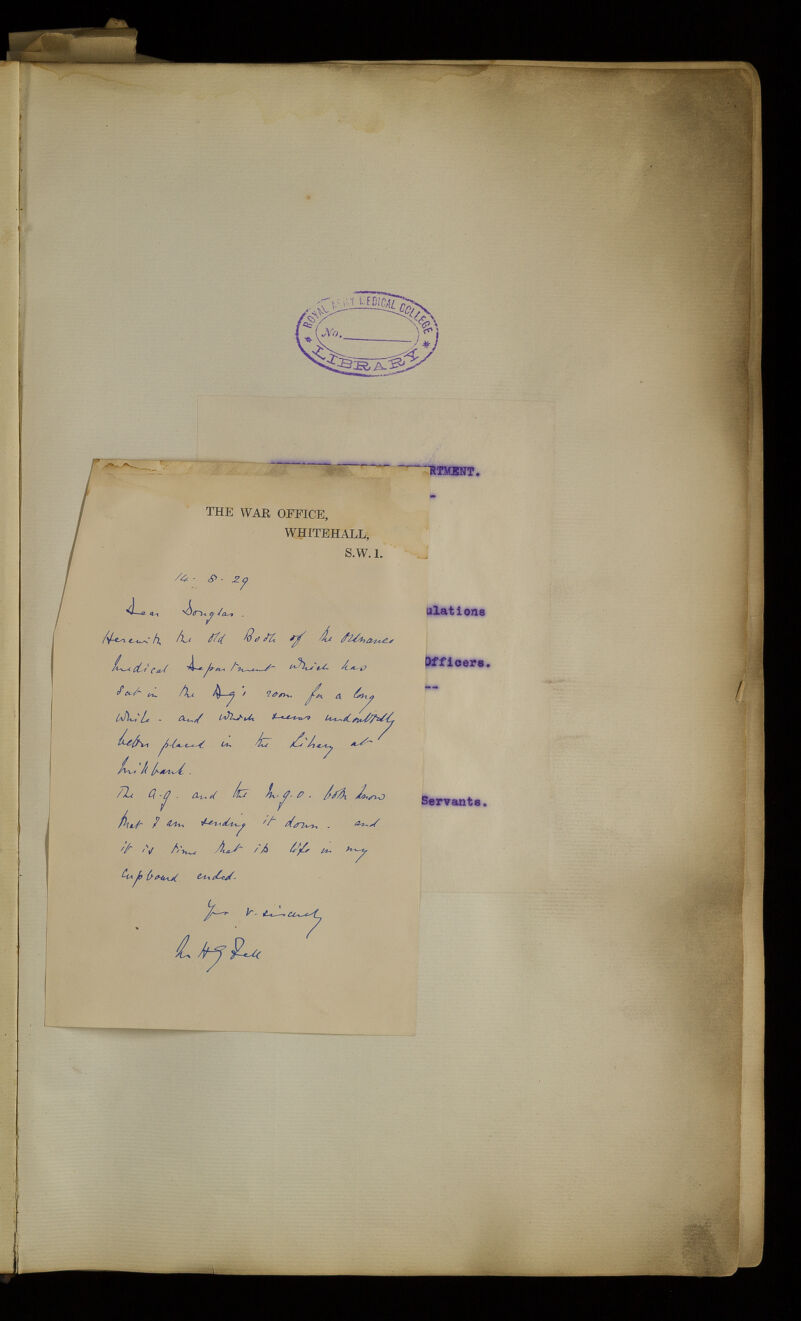 ROYAL ARMY MEDICAL COLLEGE
No.
LIBRARY
RTMENT.
ulations
Officers.
Servants.
THE WAR OFFICE,
WHITEHALL,
S.W.1.
14 - 8 - 29
Dear Douglas.
Herewith the old Book of the Ordnance
Medical Department which has
sat in the room for a long
while - and which seems undoubtedly
better placed in the Library at
Millbank.
The A.G. and the M.G.O. both know
that I am sending it down - and
it is time that its life in my
Cupboard ended.
Yrs v. sincerely
H G Fell